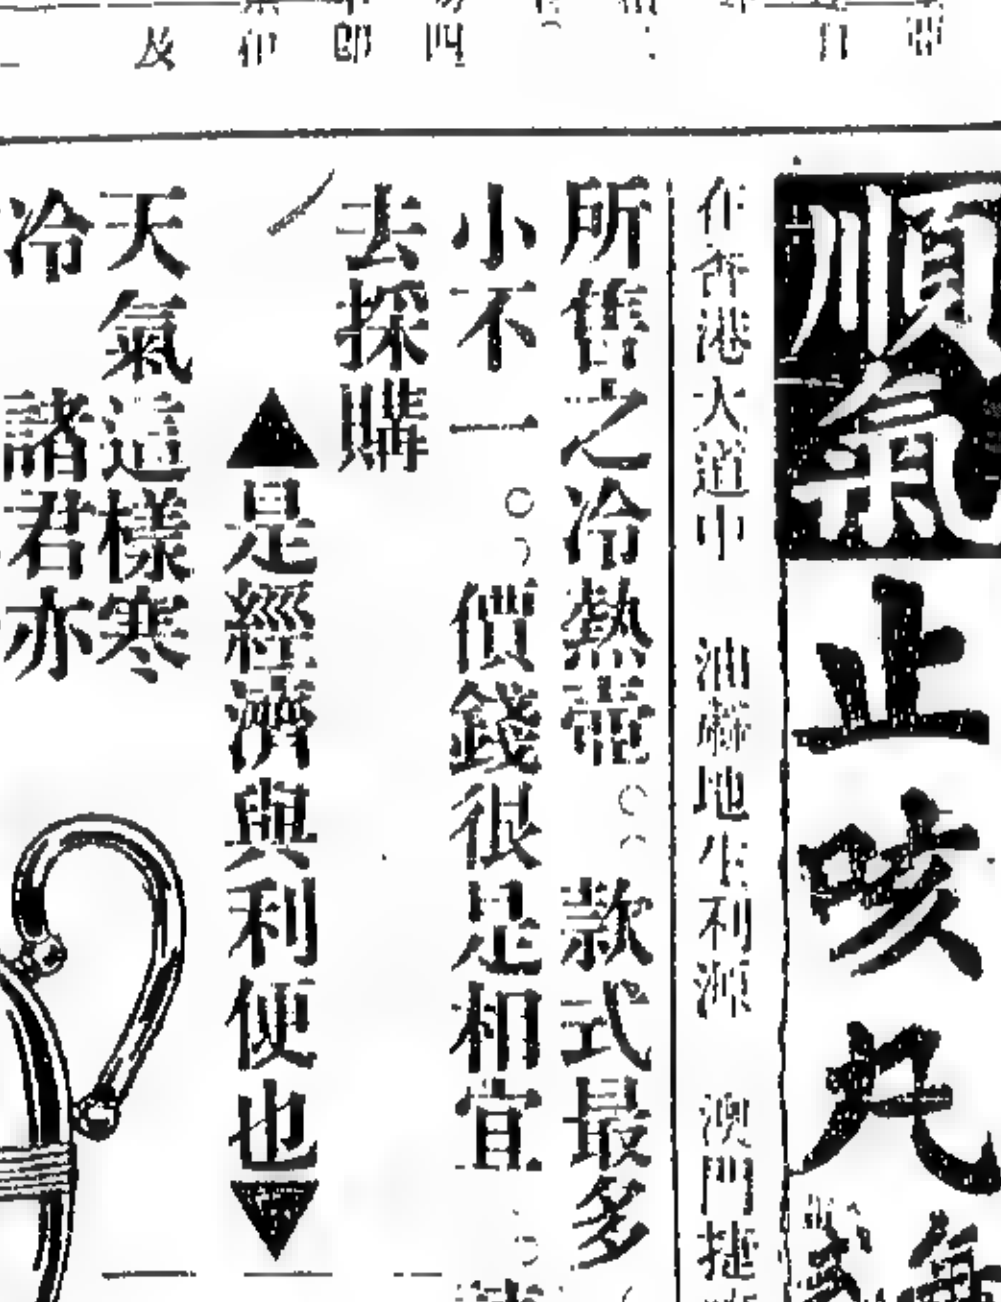 順氣
止咳丸
在香港大道中 油蔴地生利源 澳門捷
所售之冷熱壺。款式最多
小不一。價錢很是相宜
去採購
▲是經濟與利便也▼
天氣這樣寒
冷 諸君亦
四
及